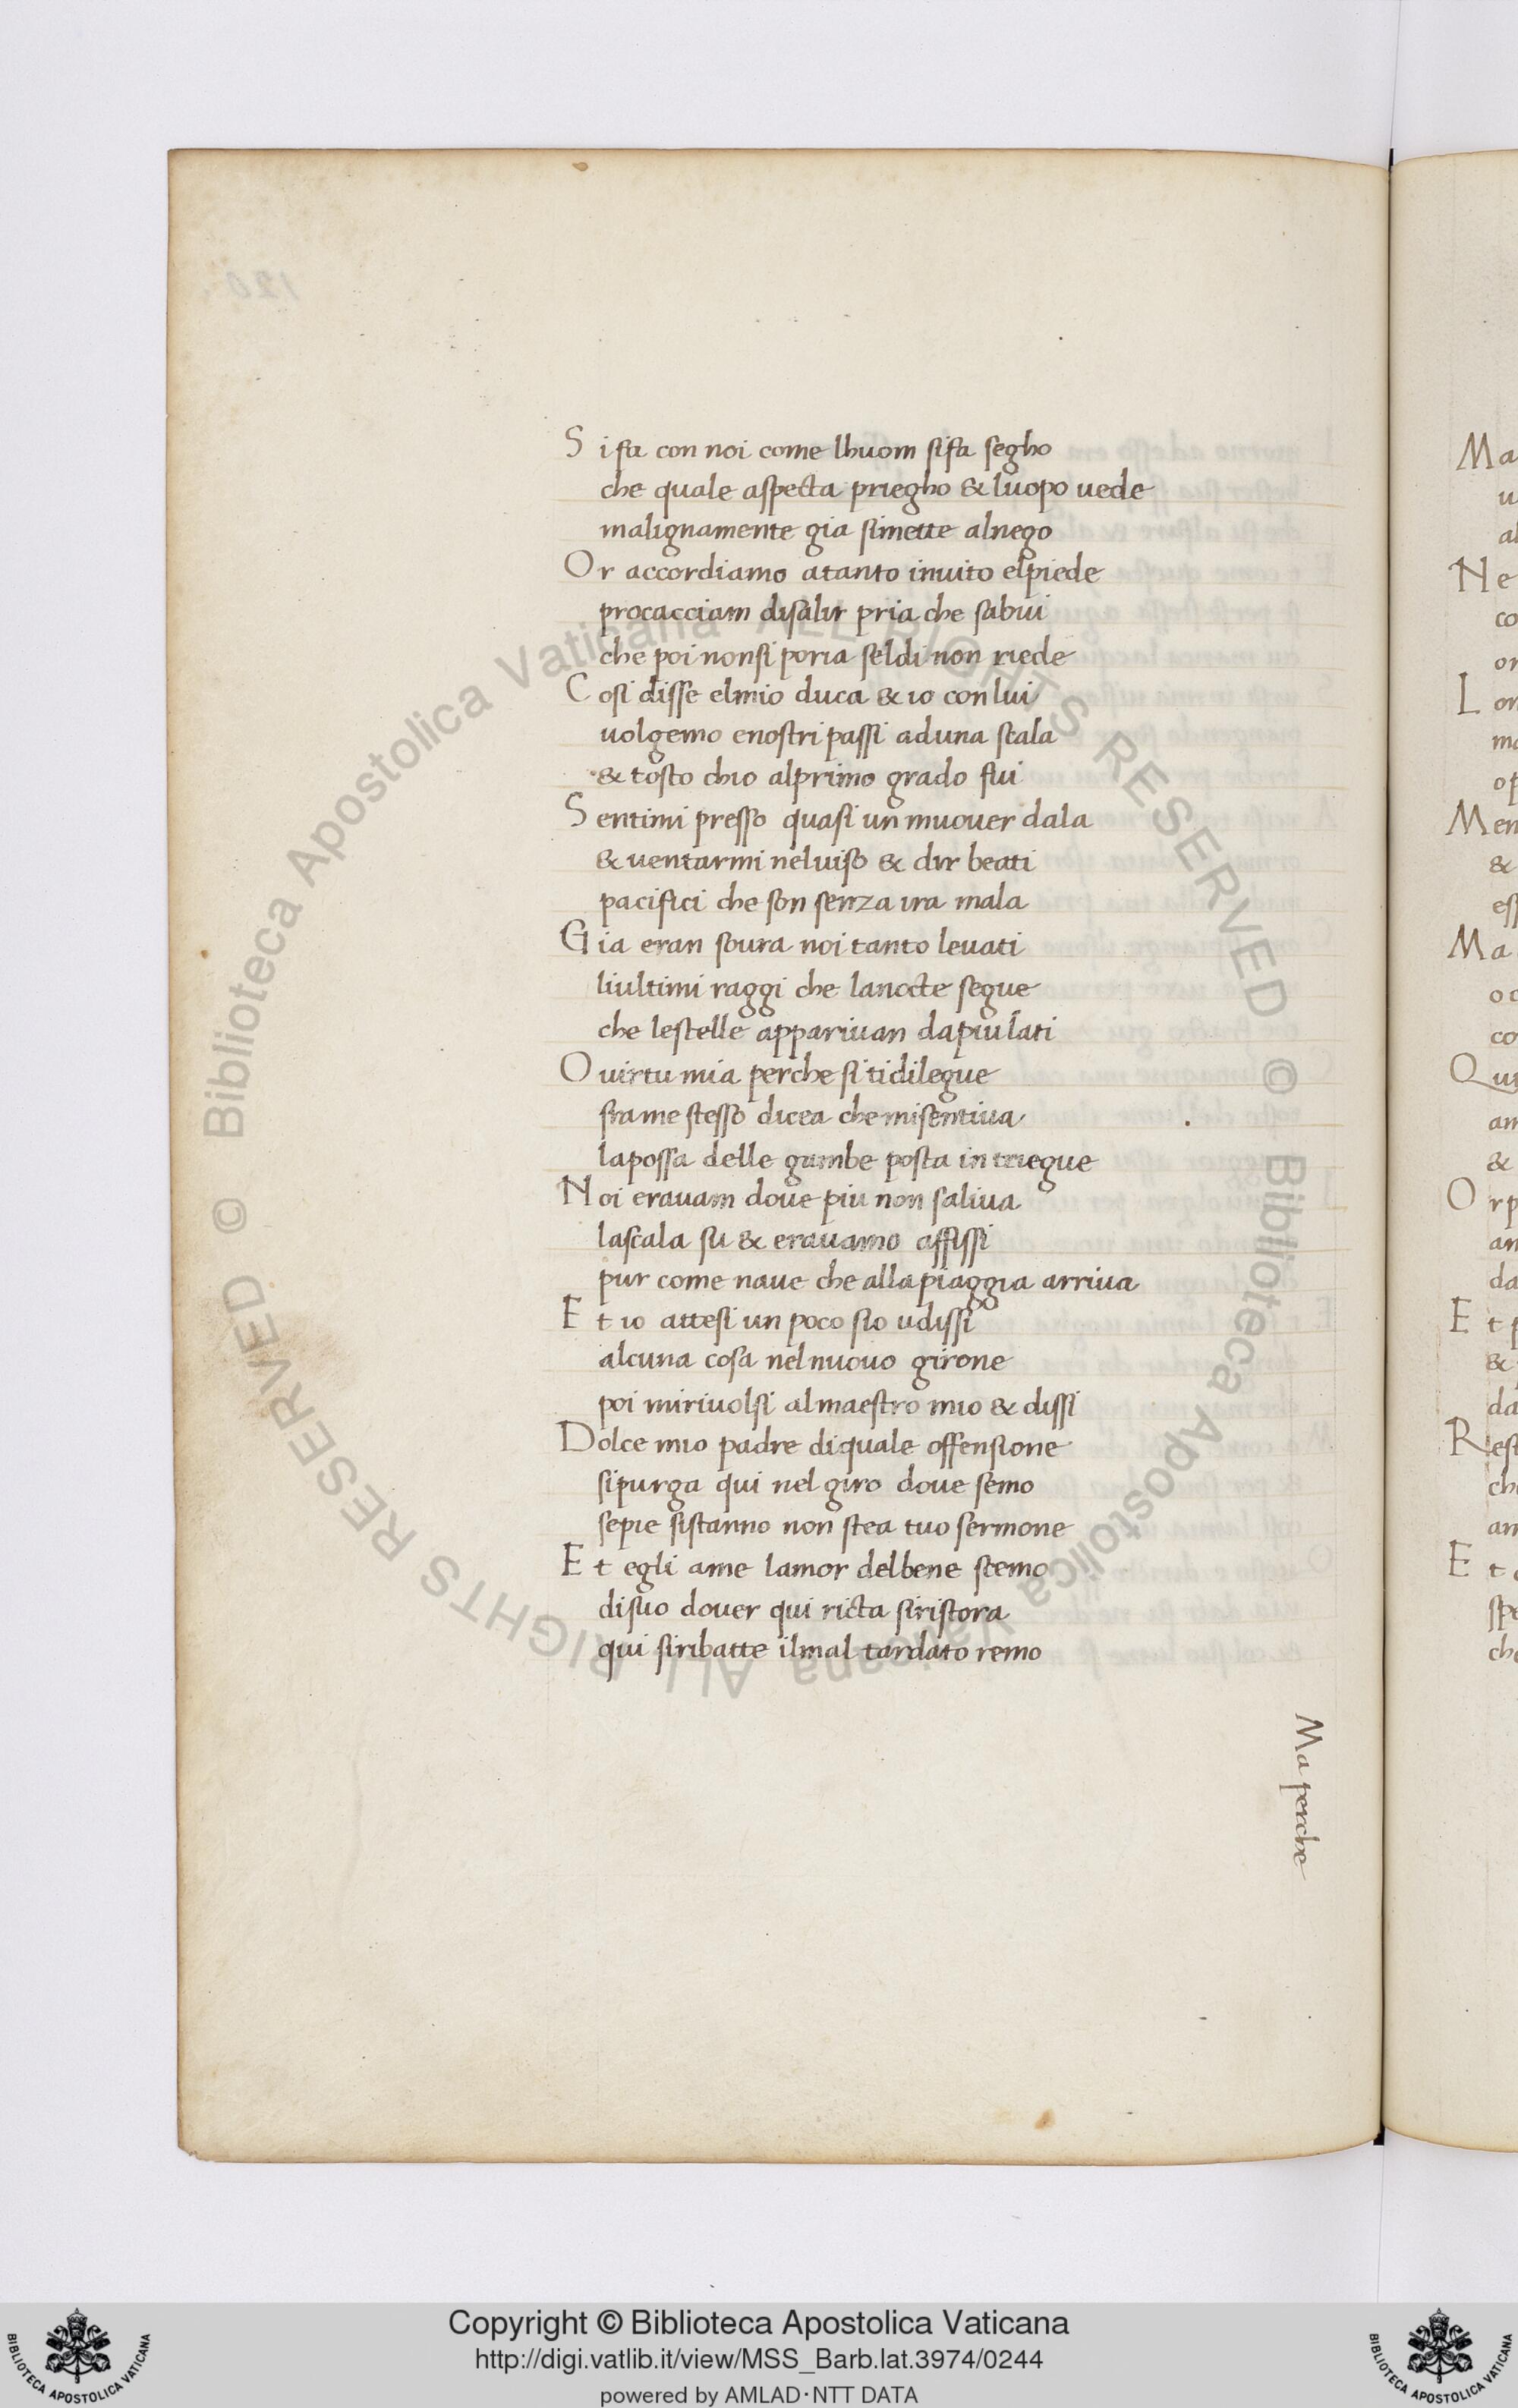 Si fa con noi come lhuom sifa segho
che quale aspecta priegho & luopo uede
malignamente gia simette alnego
Or accordiamo atanto inuito elpiede
procacciam disalir pria che sabui
che poi nonsi poria seldi non riede
Cosi disse elmio duca & io con lui
uolgemo enostri passi aduna scala
& tosto chio alprimo grado fui
Sentimi presso quasi un muouer dala
& uentarmi neluiso & dir beati
pacifici che son senza ira mala
Gia eran soura noi tanto leuati
liultimi raggi che lanocte segue
che lestelle appariuan dapiu lati
O uirtu mia perche si tidilegue
frame stesso dicea che misentiua
lapossa delle gambe posta in triegue
Noi erauam doue piu non saliua
lascala su & erauamo affissi
pur come naue che alla piaggia arriua
Et io attesi un poco sio udissi
alcuna cosa nel nuouo girone
poi miriuolsi al maestro mio & dissi
Dolce mio padre di quale offensione
sipurga qui nel giro doue semo
sepie sistanno non stea tuo sermone
Et egli ame lamor delbene scemo
disuo douer qui ricta siristora
qui siribatte ilmal tardato remo
Ma perche
Ma
Ne
co
L
Men
&
Ma
co
Qui
&
Or p
da
Et
&
da
Rest
che
Et
spe
che
120
© Biblioteca Apostolica Vaticana ALL RIGHTS RESERVED © Biblioteca Apostolica Vaticana ALL RIGHTS RESERVED
BIBLIOTECA APOSTOLICA VATICANA
Copyright © Biblioteca Apostolica Vaticana
http://digi.vatlib.it/view/MSS_Barb.lat.3974/0244
powered by AMLAD·NTT DATA
BIBLIOTECA APOSTOLICA VATICANA